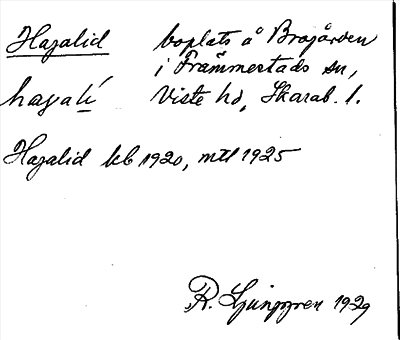 Hagalid boplats å Brogården
i Främmestads sn,
hagalí Viste hd, Skarab. l.
Hagalid kb 1920, mtl 1925
R. Ljunggren 1929